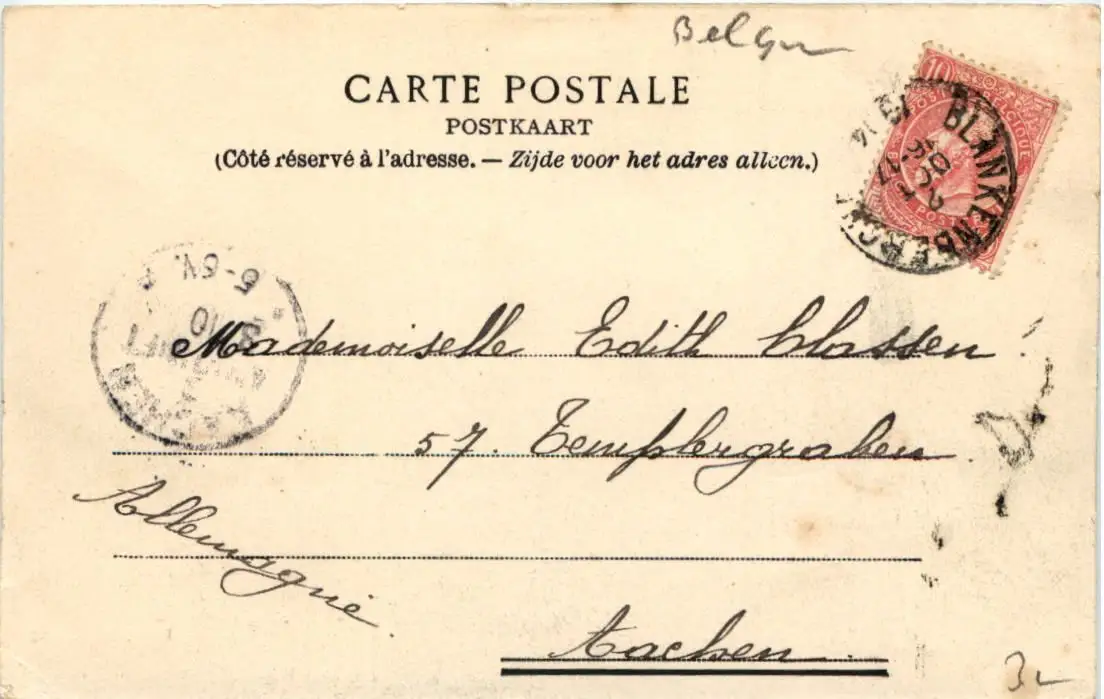 Belgu
CARTE POSTALE
POSTKAART
(Côté réservé à l'adresse. — Zijde voor het adres alleen.)
10
BELGIQUE
BLANKENBERGHE
2 OCT
Mademoiselle Edith Classen
57. Templergraben
Allemagne.
Aachen.
AACHEN
5-6 N.